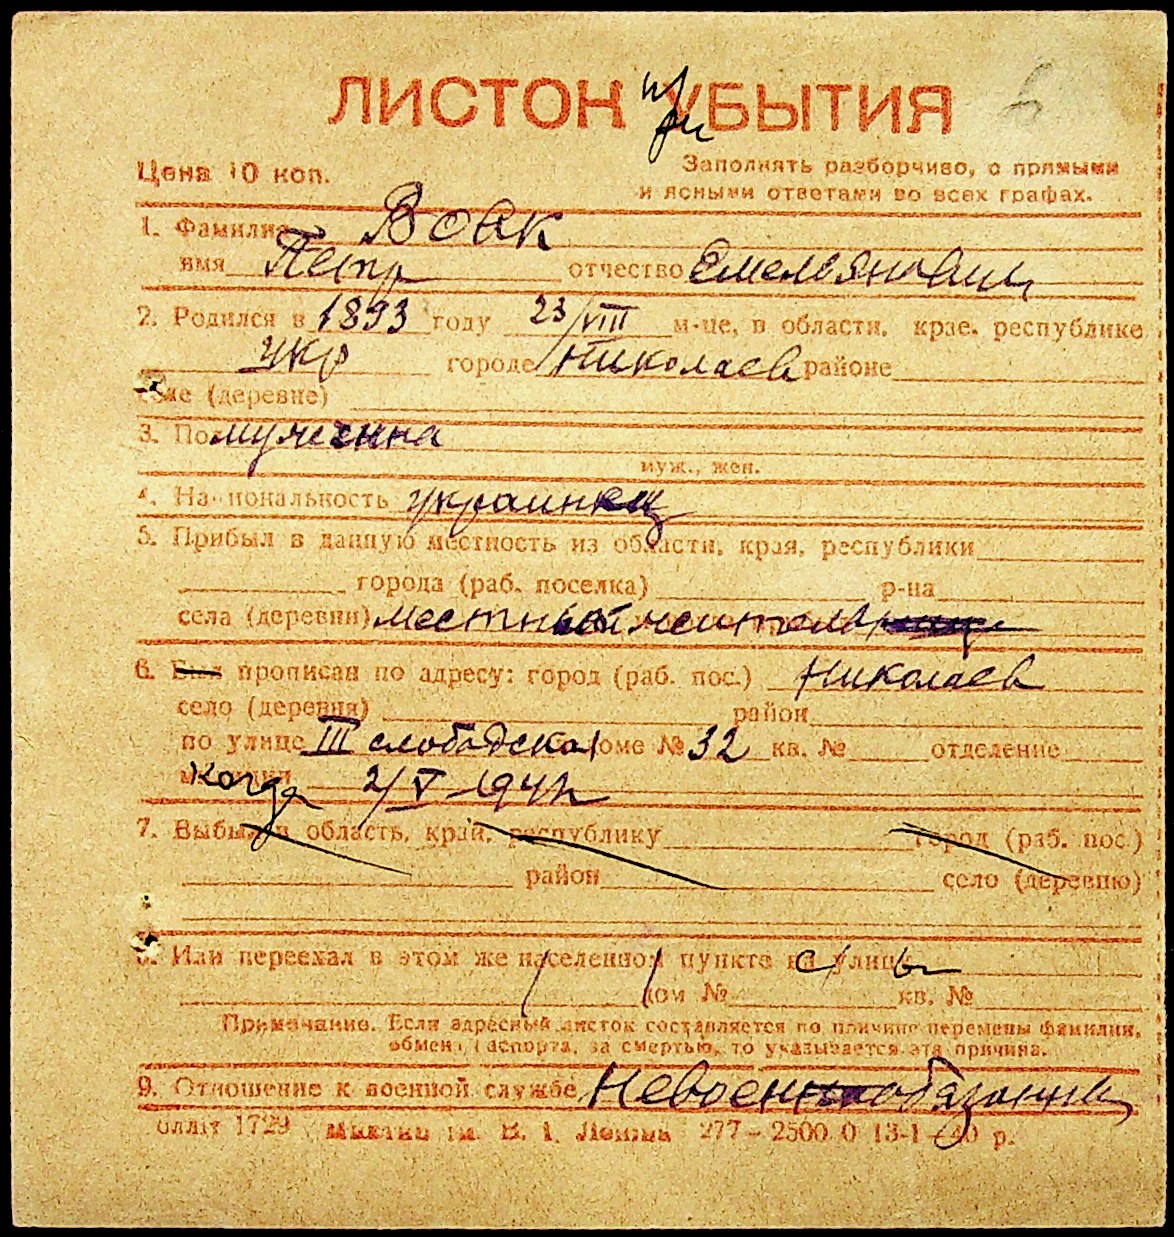 ЛИСТОК УБЫТИЯ
при
Цена 10 коп.
Заполнять разборчиво, с прямыми
и ясными ответами во всех графах.
1. Фамилия
имя Петр отчество Емельянович
2. Родился в 1893 году 23/VIII м-це, в области, крае, республике
укр городе Николаев районе
селе (деревне)
3. Пол мужчина
муж., жен.
4. Национальность украинец
5. Прибыл в данную местность из области, края, республики
города (раб. поселка) р-на
села (деревни) местный житель
6. Был прописан по адресу: город (раб. пос.) Николаев
село (деревня) район
по улице III слободская доме № 32 кв. № отделение
милиции когда 2/V-1941
7. Выбыл в область, край, республику город (раб. пос.)
район село (деревню)
8. Или переехал в этом же населенном пункте на улицу
дом № кв. №
Примечание. Если адресный листок составляется по причине перемены фамилии,
обмена паспорта, за смертью, то указывается эта причина.
9. Отношение к военной службе Невоеннообязанный
1729 им. В. І. Леніна 277—2500 0 13-1—40 р.